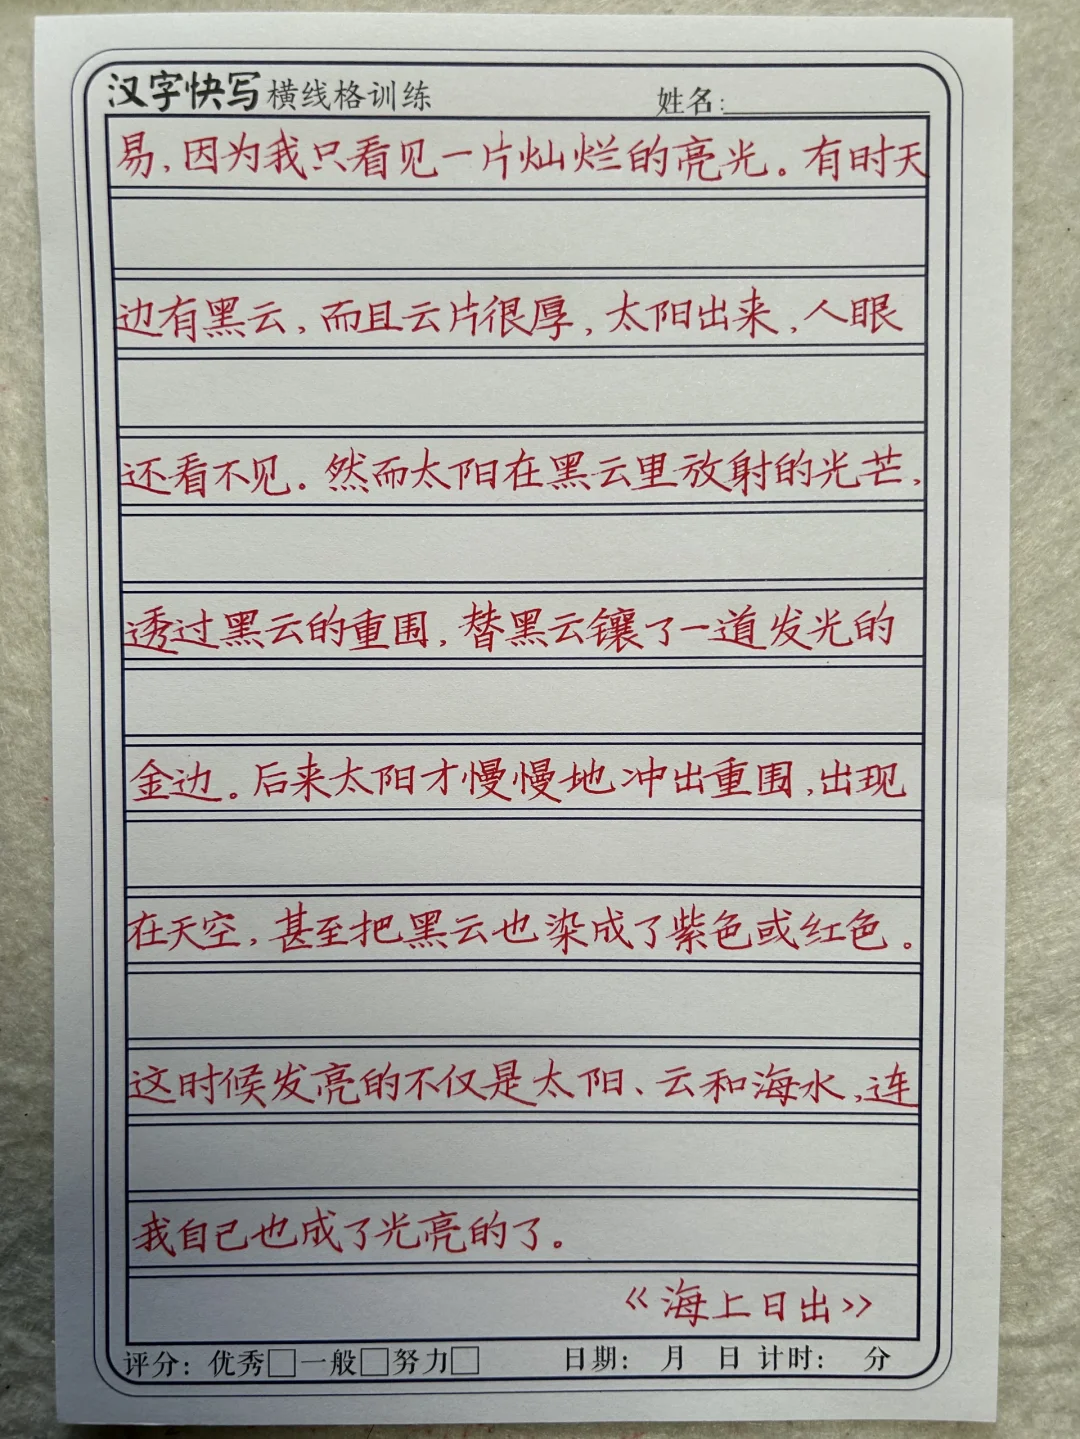 汉字快写横线格训练 姓名:
易,因为我只看见一片灿烂的亮光。有时天
边有黑云,而且云片很厚,太阳出来,人眼
还看不见。然而太阳在黑云里放射的光芒,
透过黑云的重围,替黑云镶了一道发光的
金边。后来太阳才慢慢地冲出重围,出现
在天空,甚至把黑云也染成了紫色或红色。
这时候发亮的不仅是太阳、云和海水,连
我自己也成了光亮的了。
《海上日出》
评分:优秀□一般□努力□ 日期: 月 日 计时: 分